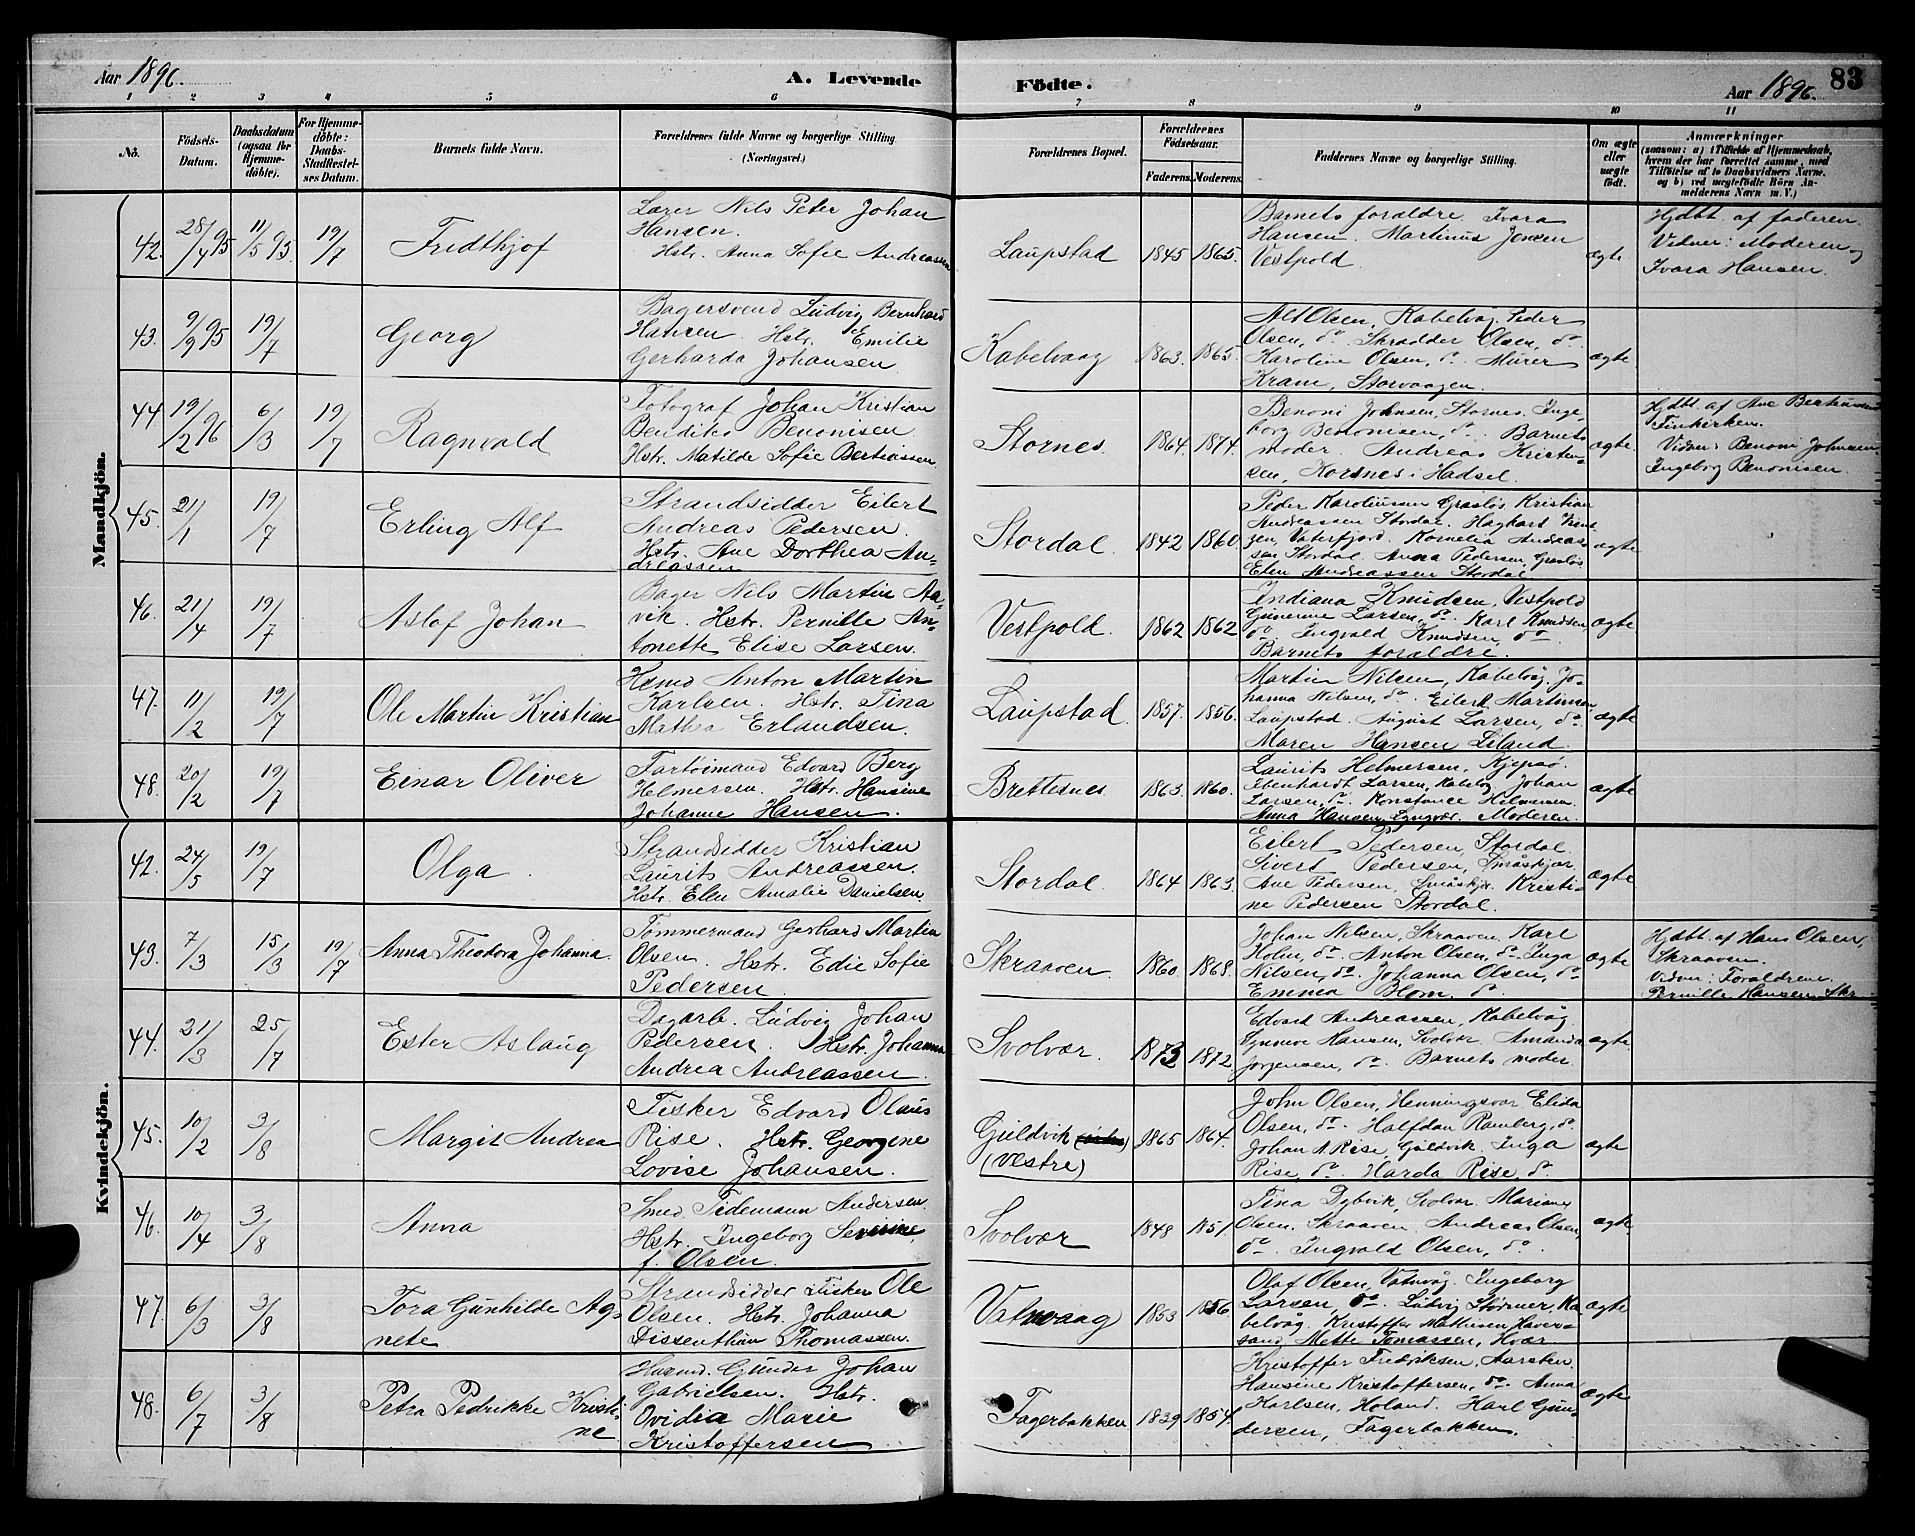 Aar 1896. A. Levende Födte. Aar 1896. 83
1 2 3 4 5 6 7 8 9 10 11
No. Födsels-Datum. Daabsdatum (ogsaa for Hjemme-döbte). For Hjemme-döbte: Daabs-Stadfæstel-ses Datum. Barnets fulde Navn. Forældrenes fulde Navne og borgerlige Stilling (Næringsvei.) Forældrenes Bopæl. Forældrenes Födselsaar. Faderens. Moderens. Faddernes Navne og borgerlige Stilling. Om ægte eller uægte födt. Anmærkninger (saasom: a) i Tilfælde af Hjemmedaab, hvem der har forrettet samme, med Tilföielse af to Daabsvidners Navne. og b) ved uægtefödte Börn An-melderens Navn m. V.)
Mandkjön.
42. 28/4 95 11/5 95. 19/7 Fridthjof
Lærer Nils Peter Johan
Hansen.
Hstr. Anna Sofie Andreassen
Laupstad 1845 1865.
Barnets forældre. Ivara
Hansen. Martinus Jensen
Vestpold.
ægte
Hjdbt. af faderen.
Vidner: Moderen og
Ivara Hansen.
43. 9/9 95 19/7 Georg
Bagersvend Ludvig Bernhard
Hansen. Hstr. Emilie
Gerharda Johansen
Kabelvaag 1863. 1865.
Alf Olsen, Kabelvåg. Peder
Olsen, do. Skrædder Olsen, do.
Karoline Olsen, do. Murer
Krane, Storvaagen.
ægte
44. 19/2 96 6/3 19/7 Ragnvald
Fotograf Johan Kristian
Bendiks Benonisen
Hstr. Matilde Sofie Bertiassen.
Stornes. 1864. 1874.
Benoni Johnsen, Stornes. Inge-
borg Benonisen, do. Barnets
moder. Andreas Kristen-
sen, Korsnes i Hadsel.
ægte.
Hjdbt. af Ane
Vidner: Benoni Johnsen
Ingeborg Benonisen.
45. 21/1 19/7 Erling Alf
Strandsidder Eilert
Andreas Pedersen.
Hstr. Ane Dorthea An-
dreassen
Stordal. 1842 1860.
Peder Graslös Kristian
Andreassen Stordal. Haghart
Vaterfjord. Kornelia Andreas-
sen Stordal. Anna Pedersen, Graslös
Elen Andreassen Stordal
ægte
46. 21/4 19/7 Aslof Johan
Bager Nils Martin Aa-
vik. Hstr. Pernille An-
tonette Elise Larsen.
Vestpold. 1862 1862
Endiana Knudsen, Vestpold
Larsen, do. Karl Knudsen,
do. Ingvald Knudsen, do.
Barnets forældre.
ægte
47. 11/2 19/7 Ole Martin Kristian
Hsmd Anton Martin
Karlsen. Hstr. Tina
Mathea Erlandsen.
Laupstad. 1857. 1856.
Martin Nilsen, Kabelvåg. Jo-
hanna Nilsen, do. Eilert Martinsen
Laupstad. August Larsen, do.
Maren Hansen Liland.
ægte
48. 20/2 19/7 Einar Oliver
Fartöimand Edvard Berg
Helmersen. Hstr. Hansine
Johanne Hansen.
Brettesnes 1863. 1860.
Laurits Helmersen, Kjepsö.
Ebenhardt Larsen, Kabelvåg Johan
Larsen, do. Konstance Helmersen.
Anna Hansen, Lyngvær. Moderen.
ægte
Kvindekjön.
42. 24/5 19/7 Olga
Strandsidder Kristian
Laurits Andreassen.
Hstr. Elen Amalie Danielsen.
Stordal. 1864 1863.
Eilert Pedersen, Stordal.
Sivert Pedersen, Småskjær
Ane Pedersen, Småskjær. Kristi-
ne Pedersen Stordal.
ægte
43. 7/3 15/3 19/7 Anna Theodora Johanna.
Tömmermand Gerhard Martin
Olsen. Hstr. Edie Sofie
Pedersen.
Skraaven. 1860 1868.
Johan Nilsen, Skraaven. Karl
Holm, do. Anton Olsen, do. Inga
Nilsen, do. Johanna Olsen, do
Emma Blom. do.
ægte
Hjdbt. af Hans Olsen,
Skraaven.
Vidner: Forældrene.
Pernille Hansen, Skr
44. 21/3 25/17 Ester Aslaug
Dagarb. Ludvig Johan
Pedersen. Hstr. Johanna
Andrea Andreassen.
Svolvær. 1873 1872
Edvard Andreassen, Kabelvåg
Hansen, Svolvær. Amanda
Jørgensen, do. Barnets moder.
ægte
45. 10/2 3/8 Margit Andrea
Fisker Edvard Olaus
Rise. Hstr. Georgine
Lovise Johansen.
Guldvik
(vestre) 1865 1864.
John Olsen, Henningsvær Elida
Olsen, do. Halfdan Ramberg, do.
Johan A Rise, Guldvik. Inga
Rise, do. Harda Rise, do.
ægte
46. 10/4 3/8 Anna
Smed Tidemann Andersen.
Hstr. Ingeborg Severine,
f. Olsen.
Svolvær 1848 1851.
Tina Dybvik, Svolvær. Mariane
Olsen. Skraaven. Andreas Olsen,
do. Ingvald Olsen, do.
ægte
47. 6/3 3/8 Tora Gunhilde Ag-
nete
Strandsidder Fisker Ole
Olsen. Hstr. Johanna
Dissenthun Thomassen.
Vatnvaag) 1853 1856
Olaf Olsen, Vatnvåg. Ingeborg
Larsen, do. Ludvig Störmer, Ka-
belvåg. Kristoffer Mathisen Haver-
sand. Mette Tomassen,
ægte
48. 6/7 3/8 Petra Pedrikke Kristi-
ne
Husmd. Gunder Johan
Gabrielsen. Hstr.
Ovidia Marie
Kristoffersen
Fagerbakken 1839 1854.
Kristoffer Fredriksen, Aarsten.
Hansine Kristoffersen, do. Anna
Karlsen, Holand. Karl Gun-
dersen, Fagerbakken.
ægte